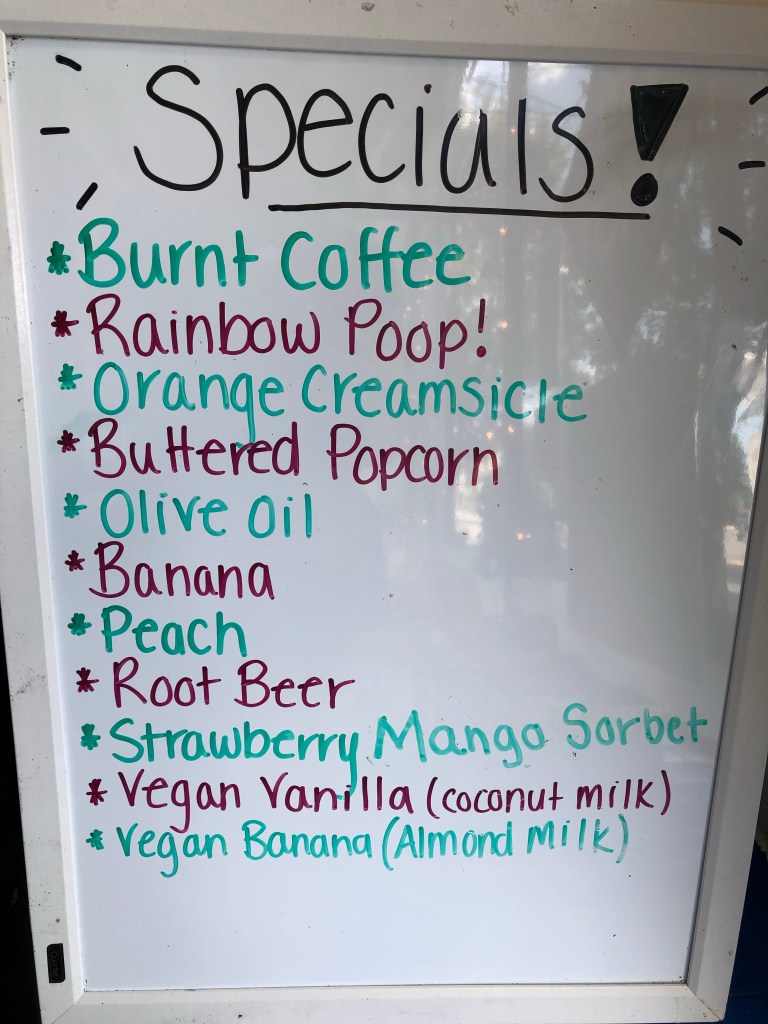 Specials!
* Burnt Coffee
* Rainbow Poop!
* Orange Creamsicle
* Buttered Popcorn
* Olive oil
* Banana
* Peach
* Root Beer
* Strawberry Mango Sorbet
* Vegan Vanilla (coconut milk)
* Vegan Banana (Almond Milk)